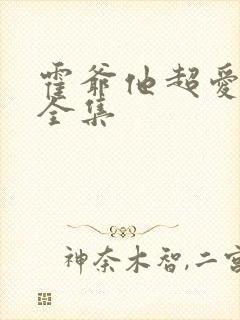 霍爷他超爱
全集
神奈木智,二宫